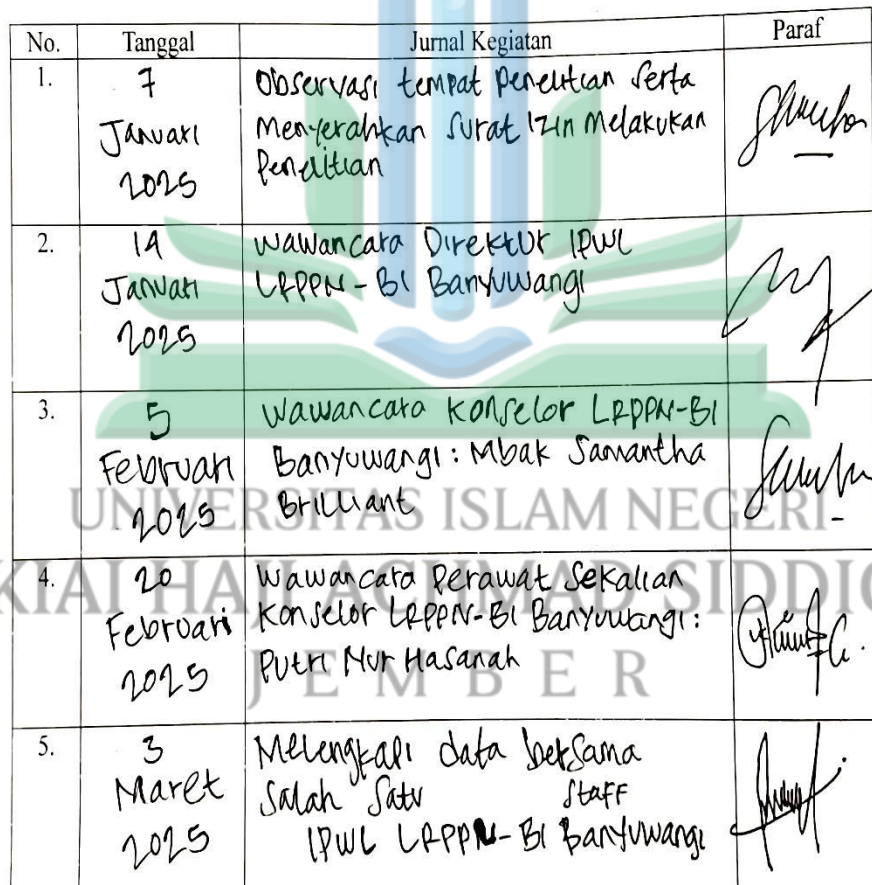 No. Tanggal Jurnal Kegiatan Paraf
1. 7 Januari 2025
Observasi tempat Penelitian Serta
Menyerahkan Surat Izin Melakukan
Penelitian
2. 14 Januari 2025
Wawancara Direktur IPWL
LRPPN-BI Banyuwangi
3. 5 Februari 2025
Wawancara Konselor LRPPN-BI
Banyuwangi: Mbak Samantha
Brilliant
4. 20 Februari 2025
Wawancara Perawat Sekalian
Konselor LRPPN-BI Banyuwangi:
Putri Nur Hasanah
5. 3 Maret 2025
Melengkapi data bersama
Salah Satu Staff
IPWL LRPPN-BI Banyuwangi
UNIVERSITAS ISLAM NEGERI
KIAI HAJI ACHMAD SIDDIQ
JEMBER